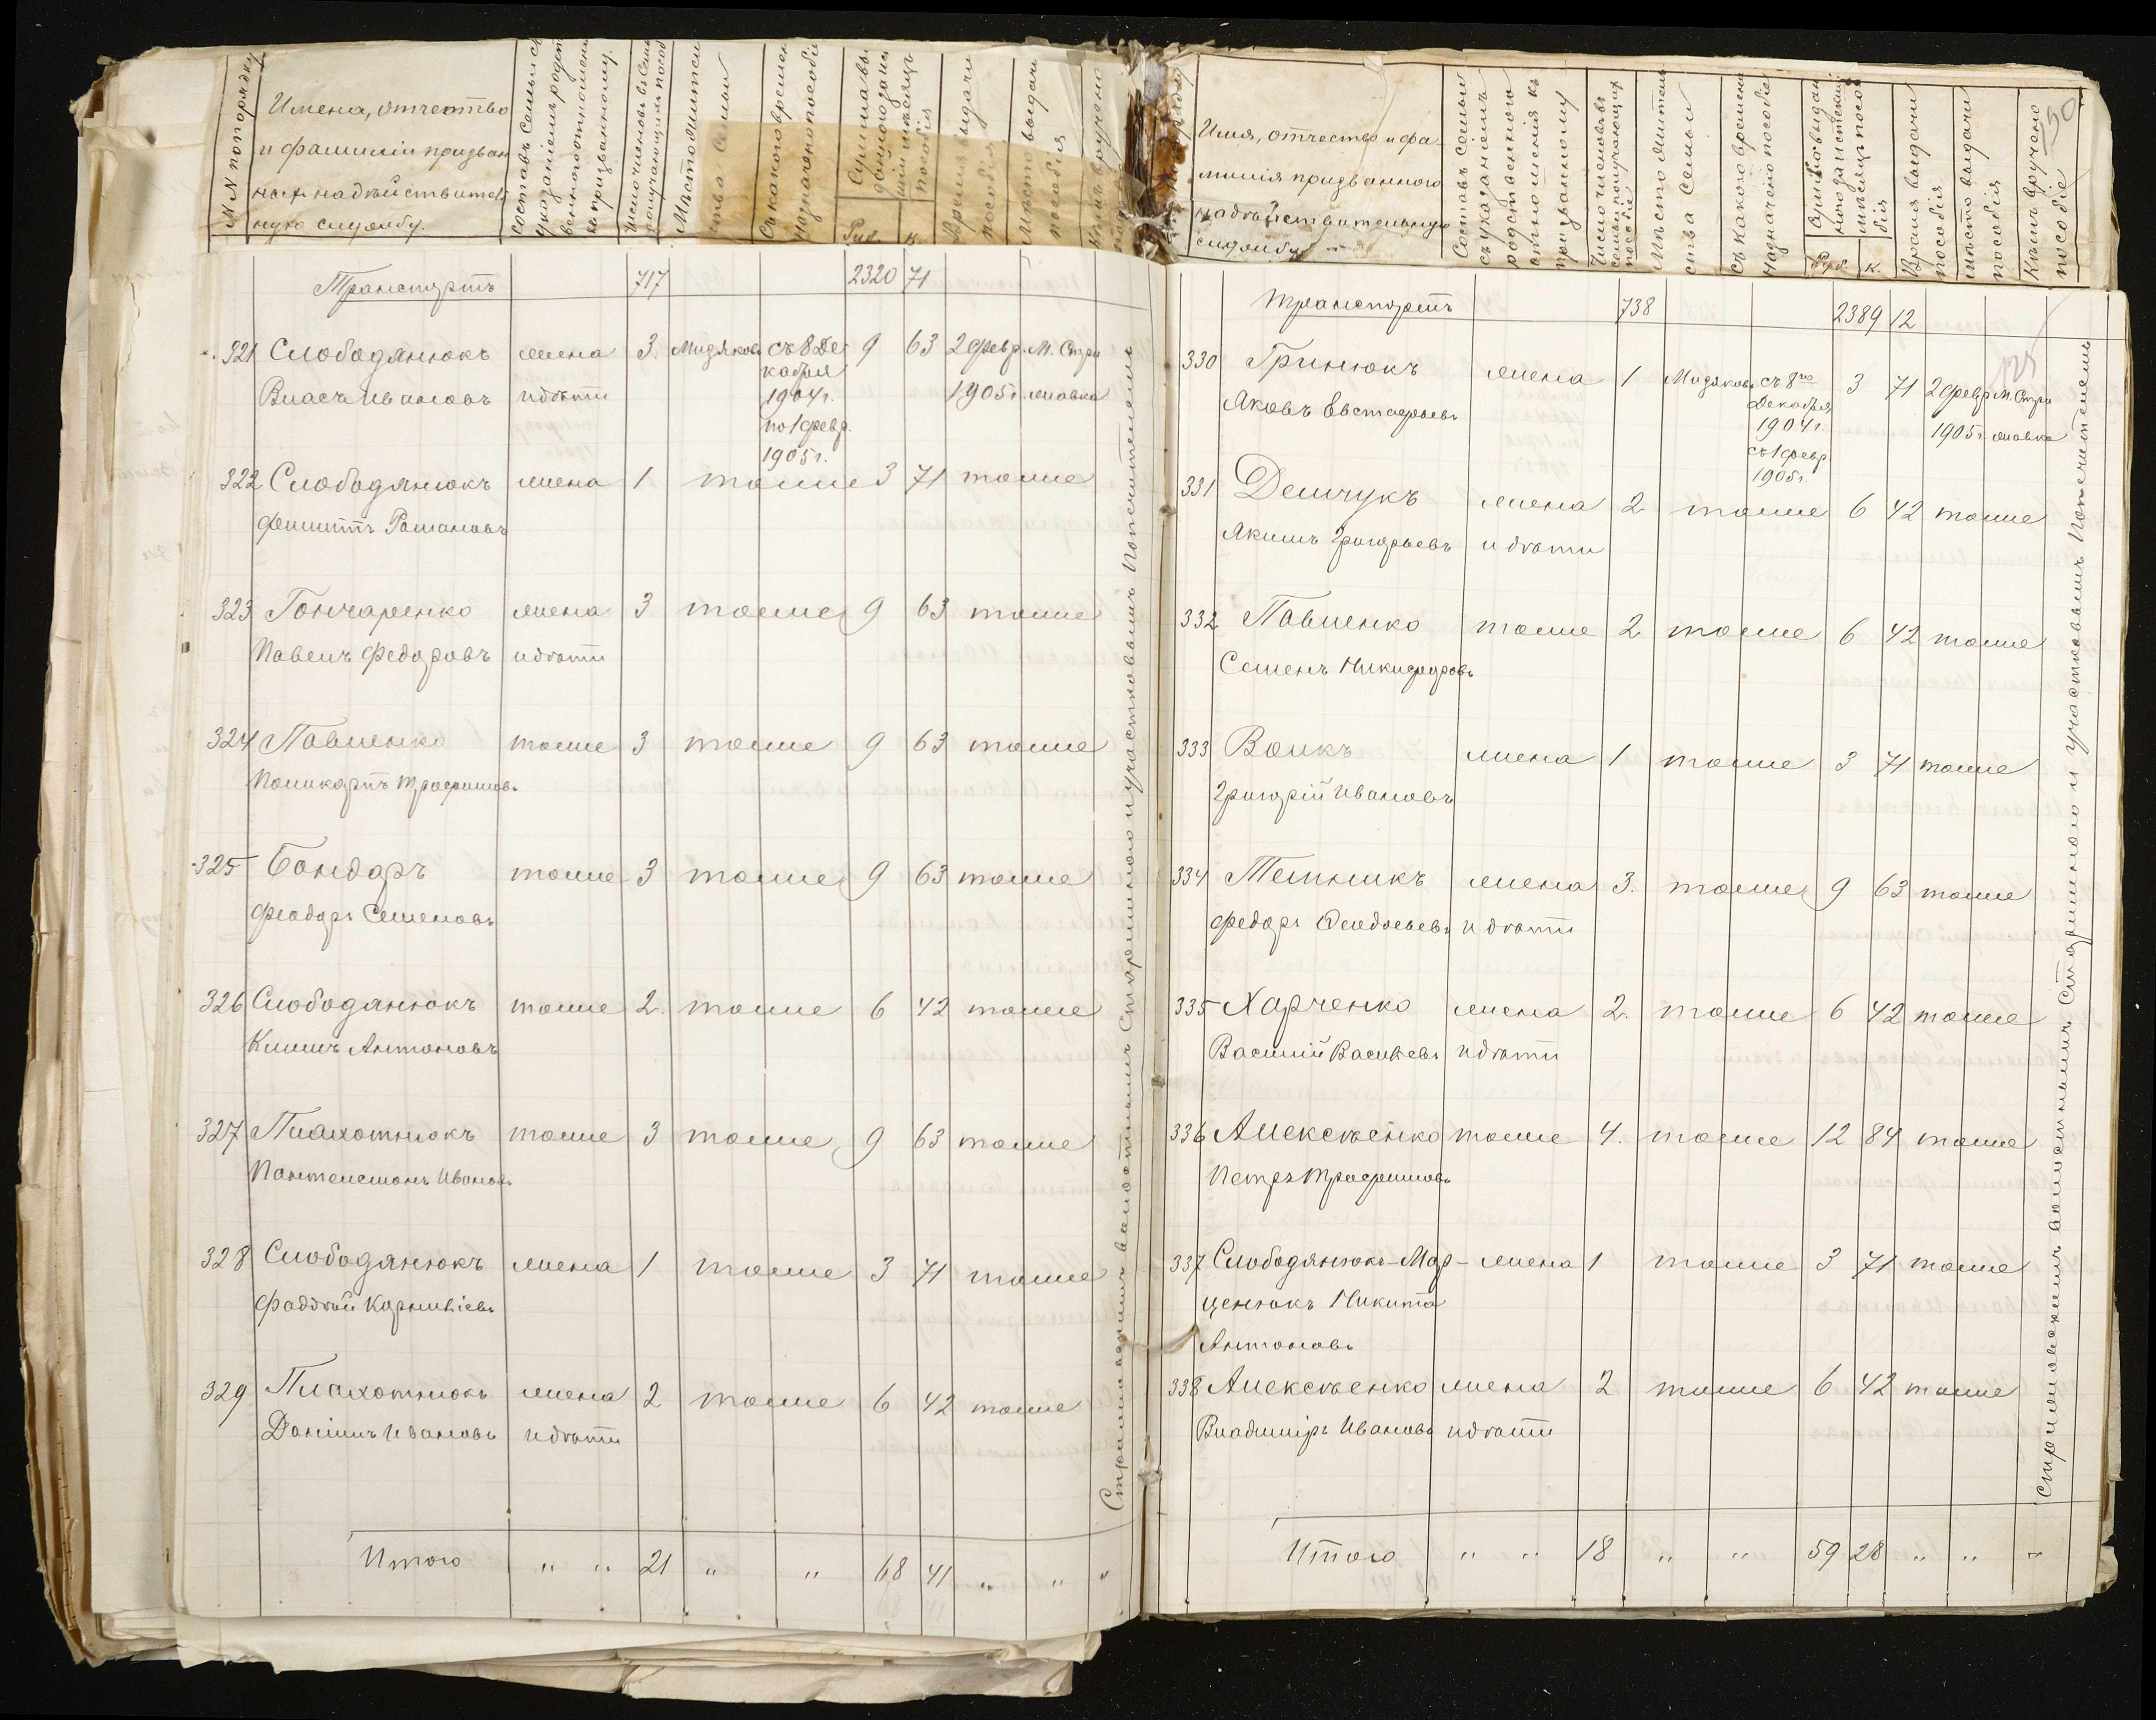 №№ по порядку
Имена, отчество
и фамилии призван
ных на дѣйствитель
ную службу.
Составъ семьи съ
указаніемъ родст
веннаго отношенія
къ призванному.
Число членовъ въ семьѣ
получающихъ пособ
Мѣстожительс
тва семьи
Съ какого времени
назначено пособіе
Сумма вы
даннаго за ист
шій мѣсяцъ
пособія
Руб. к.
Время выдачи
пособія
Мѣсто выдачи
пособія
Кѣмъ вручено
Транспортъ 717 2320 71
321 Слободянюкъ жена 3. Мидяковъ съ 8 Де 9 63 2 февр. М. Стри
кабря
Власъ Ивановъ и дѣти 1904 г. 1905 г. жавка
по 1 февр.
1905 г.
322 Слободянюкъ жена 1 тоже 3 71 тоже
Филиппъ Романовъ
323 Гончаренко жена 3 тоже 9 63 тоже
Павелъ Федоровъ и дѣти
324 Павленко тоже 3 тоже 9 63 тоже
Поликарпъ Трофимовъ
325 Бондарь тоже 3 тоже 9 63 тоже
Феодоръ Семеновъ
326 Слободянюкъ тоже 2. тоже 6 42 тоже
Климъ Антоновъ
327 Пляхотнюкъ тоже 3 тоже 9 63 тоже
Пантелеймонъ Ивановъ
328 Слободянюкъ жена 1 тоже 3 71 тоже
Фаддѣй Корниліевъ
329 Пляхотнюкъ жена 2 тоже 6 42 тоже
Даніилъ Ивановъ и дѣти
Итого " " 21 " " 68 41 " " "
Стрижавскимъ волостнымъ Старшиною и участковымъ Попечителемъ
Имя, отчество и фа-
милія призваннаго
на дѣйствительную
службу
Составъ семьи
съ указаніемъ
родственнаго
отношенія къ
призванному
Число членовъ въ
семьѣ получающихъ
пособіе
Мѣсто житель
ства семьи
Съ какого времени
назначено пособіе
Сумма выдан
наго за истекшій
мѣсяцъ посо
бія
Руб. к.
Время выдачи
пособія
Мѣсто выдачи
пособія
Кѣмъ вручено
пособіе
50
Транспортъ 738 2389 12
330 Гринюкъ жена 1 Мидяковъ съ 8го 3 71 2 февр М. Стри
Декабря
Яковъ Евстафьевъ 1904 г. 1905 г. жавка
съ 1 февр.
1905 г.
331 Демчукъ жена 2 тоже 6 42 тоже
Якимъ Григорьевъ и дѣти
332 Павленко тоже 2 тоже 6 42 тоже
Семенъ Никифоровъ
333 Волкъ жена 1 тоже 3 71 тоже
Григорій Ивановъ
334 Тетникъ жена 3. тоже 9 63 тоже
Федоръ Феодосьевъ и дѣти
335 Харченко жена 2. тоже 6 42 тоже
Василій Васильевъ и дѣти
336 Алексѣенко тоже 4. тоже 12 84 тоже
Петръ Трофимовъ
337 Слободянюкъ-Мар- жена 1 тоже 3 71 тоже
ценюкъ Никита
Антоновъ
338 Алексѣенко жена 2 тоже 6 42 тоже
Владиміръ Ивановъ и дѣти
Итого " " 18 " " 59 28 " " "
Стрижавскимъ волостнымъ Старшиною и участковымъ Попечителемъ